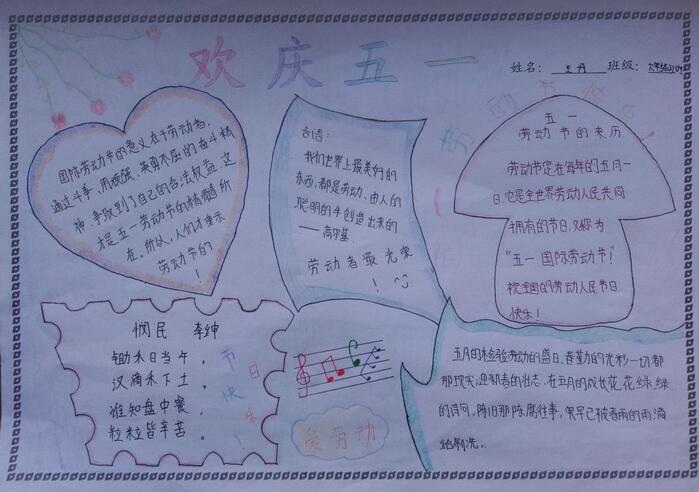 欢庆五一
姓名：王丹 班级：
国际劳动节的意义在于劳动者，
通过斗争，用顽强、英勇不屈的奋斗精
神，争取到了自己的合法权益，这
才是五一劳动节的精髓所
在。所以，人们才庆示
劳动节的
！
名言：
我们世界上最美好的
东西，都是劳动、由人的
聪明的手创造出来的
——高尔基.
劳动者最光荣
！
五一
劳动节的来历
劳动节定在每年的五月一
日，它是全世界劳动人民共同
拥有的节日，又称为
“五一国际劳动节！”
祝全国的劳动人民节日
快乐！
悯民 李绅
锄禾日当午，
汗滴禾下土。
谁知盘中餐，
粒粒皆辛苦。
节日快乐！
爱劳动
五月的检验劳动的盛日，春勤的光彩一切都
那现实，迎新者的壮志，在五月的成女花，花绿绿
的诗句，陈旧那陈腐往事，早已被春雨的雨滴
给制洗。